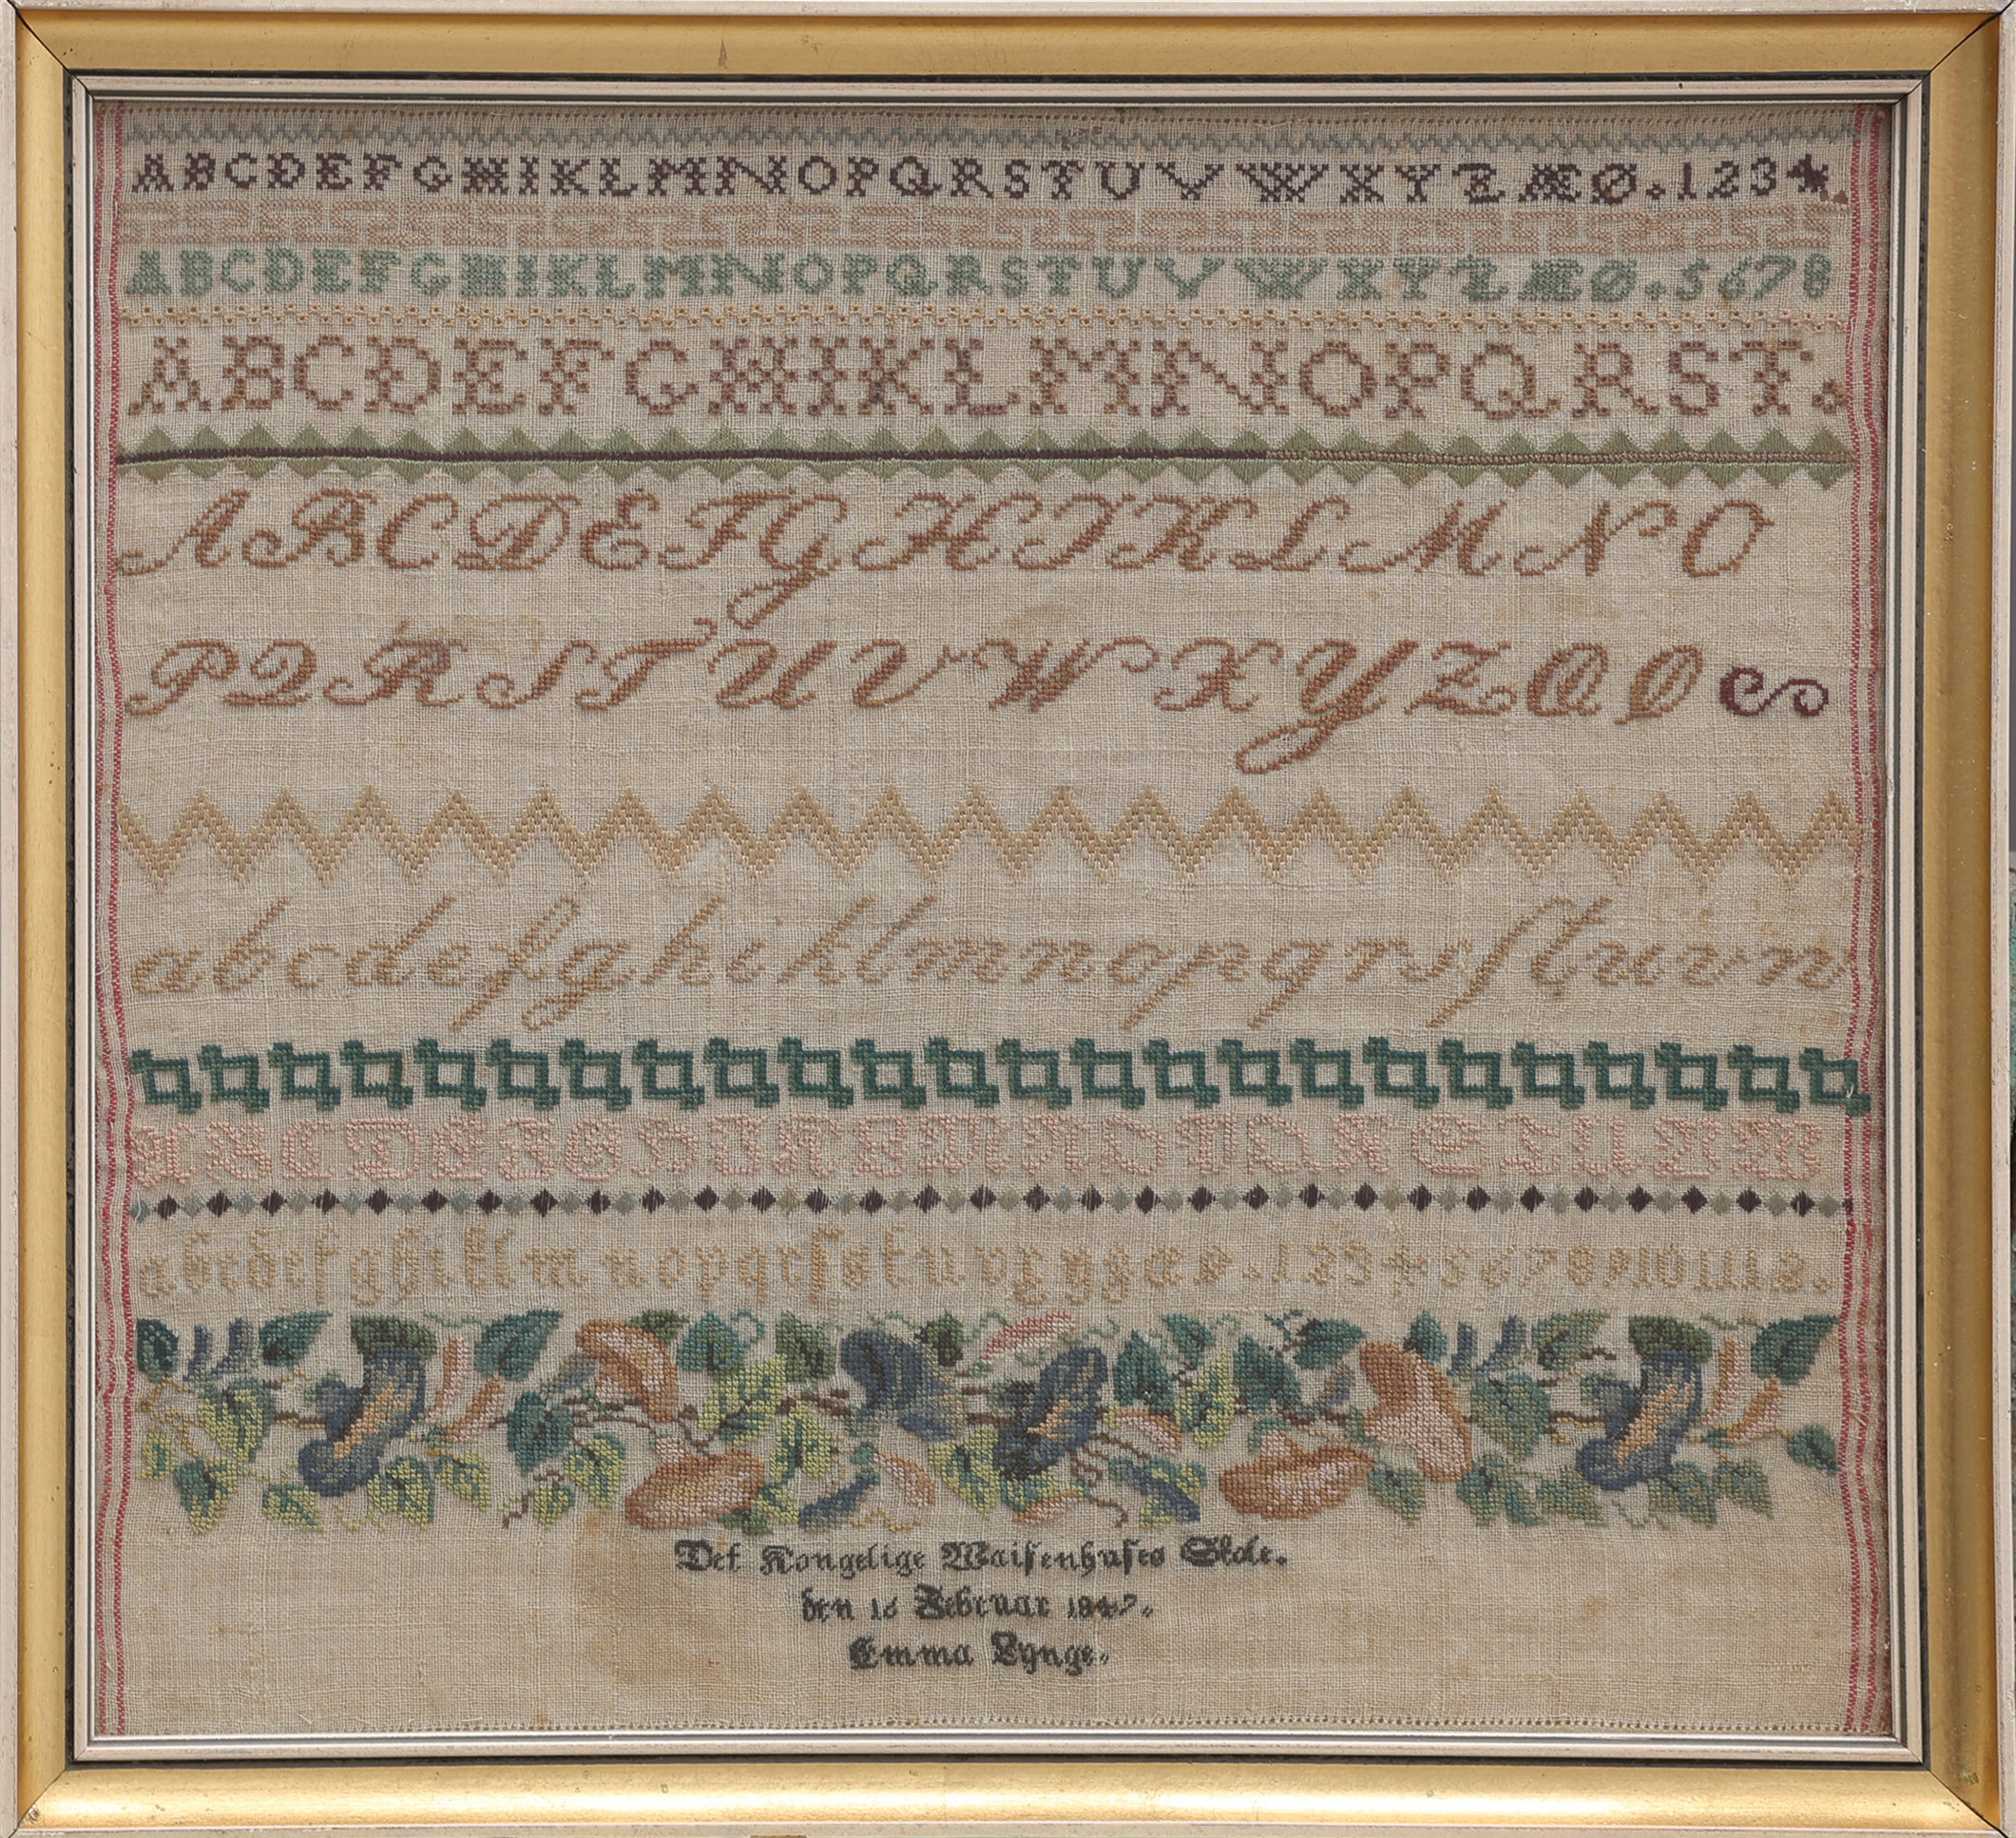 ABCDEFGHIKLMNOPQRSTUVWXYZÆØ.1234
ABCDEFGHIKLMNOPQRSTUVWXYZÆØ.5678
ABCDEFGHIKLMNOPQRST.
ABCDEFGHIKLMNO
PQRSTUVWXYZÆØ
abcdefghiklmnopqrsſtuvw
ABCDEFGHIKLMNOPQRSTUVW
abcdefghiklmnopqrſstuvxyzæø.123456789101112.
Det Kongelige Waiſenhuſes Skole.
den 16 Februar
Emma Lynge.